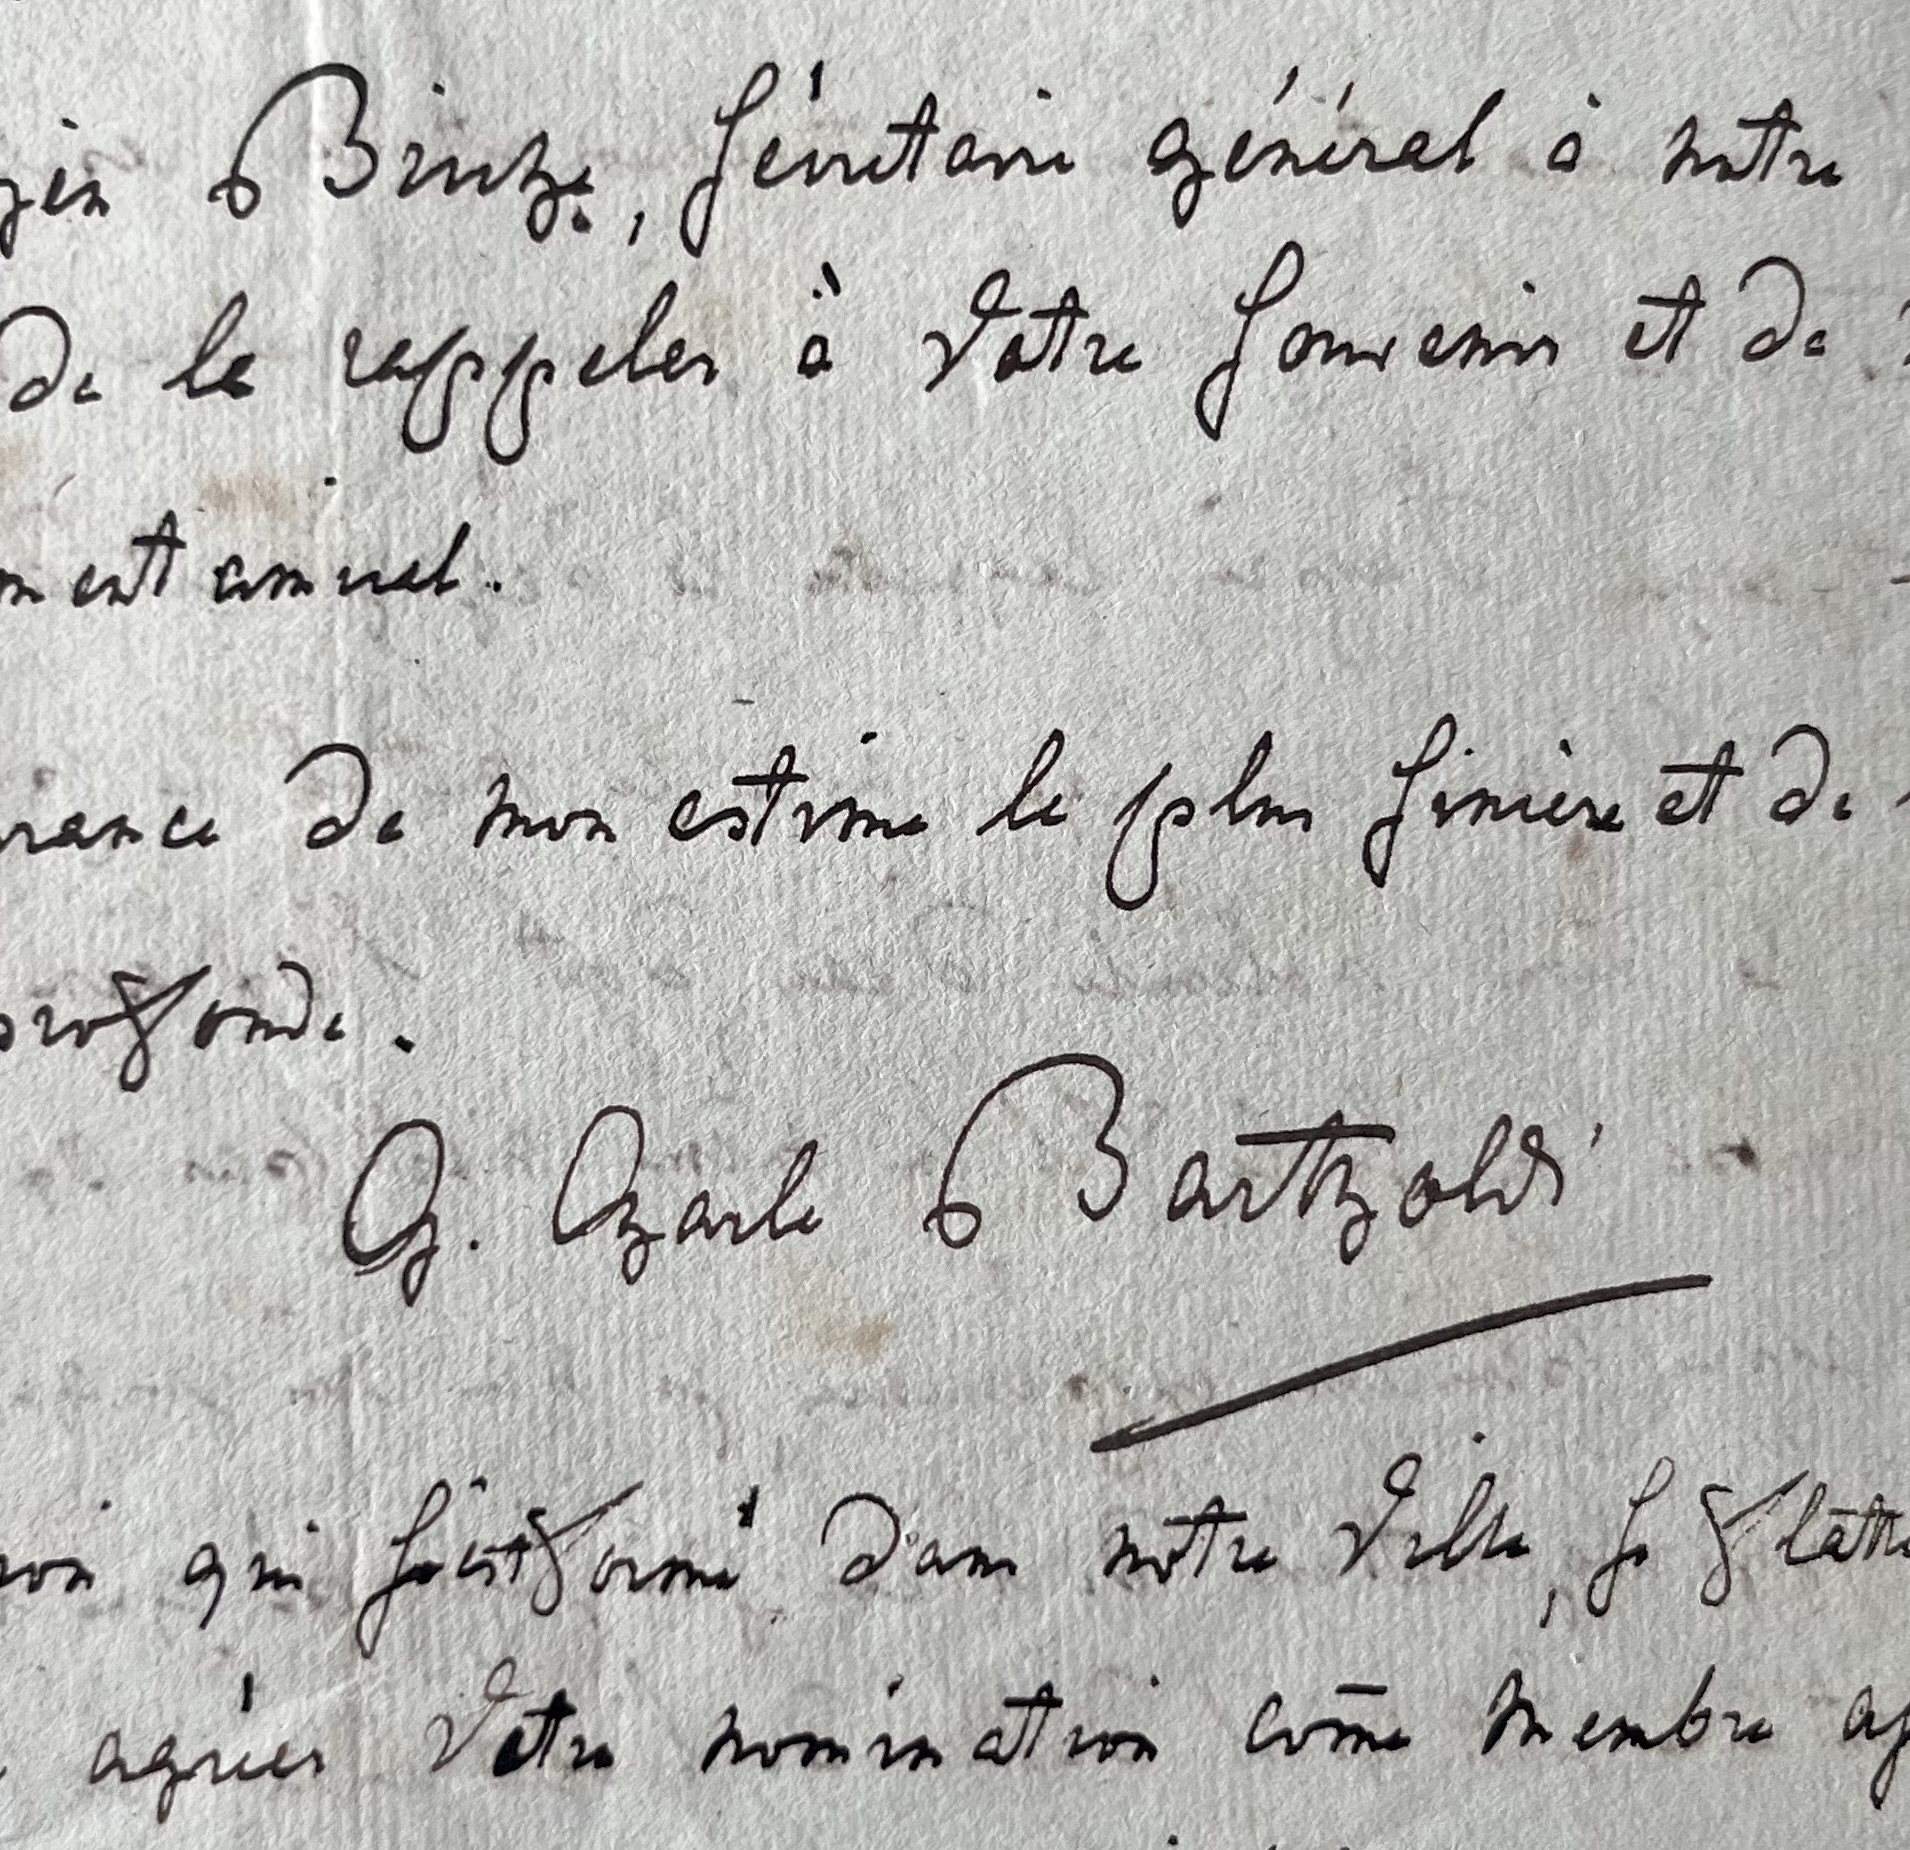 Sécretaire général à notre
de le rappeler à Votre Souvenir et de
ment annuel.
rance de mon estime la plus sincère et de
profonde.
G. Charle Bartholdi
qui s'est formé dans notre Ville, se flatte
agréer Votre nomination com̄e membre